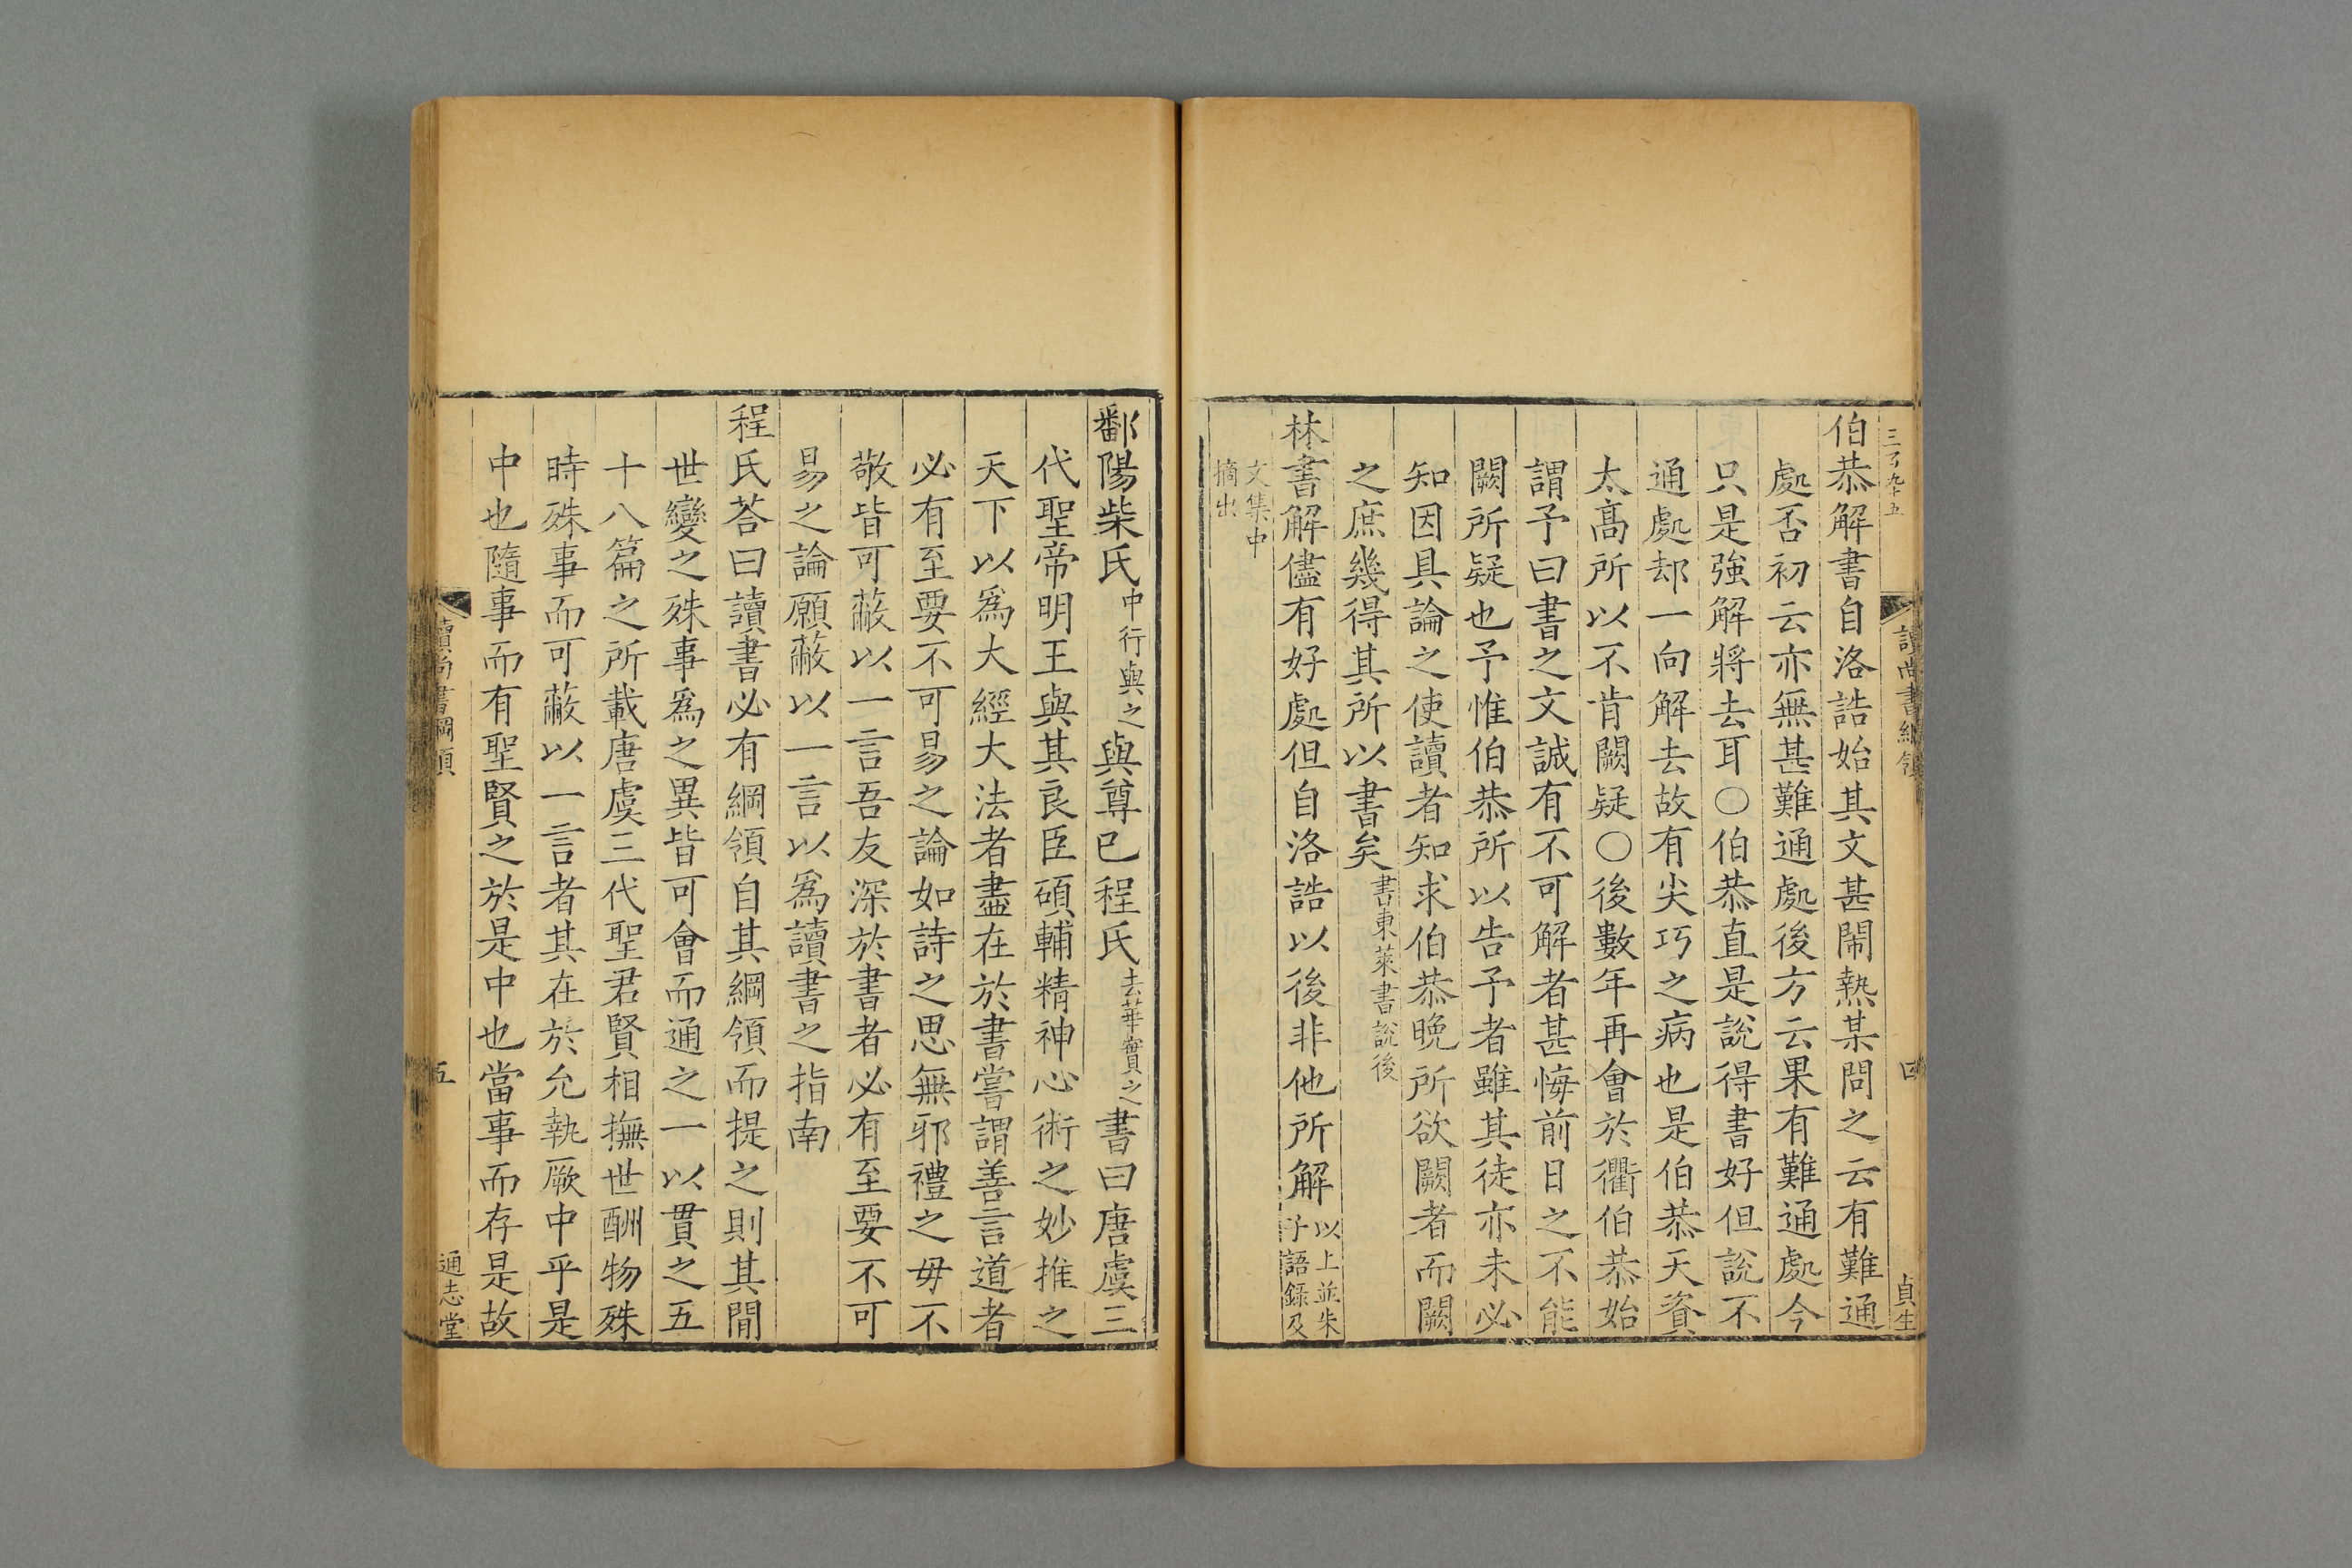 伯恭解書自洛誥始其文甚閙熱某問之云有難通
處否初云亦無甚難通處後方云果有難通處今
只是強解將去耳〇伯恭直是說得書好但說不
通處却一向解去故有尖巧之病也是伯恭天資
太高所以不肯闕疑〇後數年再會於衢伯恭始
謂予曰書之文誠有不可解者甚悔前日之不能
闕所疑也予惟伯恭所以告予者雖其徒亦未必
知因具論之使讀者知求伯恭晚所欲闕者而闕
之庶幾得其所以書矣書東萊書說後
林書解儘有好處但自洛誥以後非他所解以上並朱子語錄及
文集中摘出
讀尚書綱領
四
貞生
鄱陽柴氏中行與之與尊已程氏去華實之書曰唐虞三
代聖帝明王與其良臣碩輔精神心術之妙推之
天下以爲大經大法者盡在於書嘗謂善言道者
必有至要不可易之論如詩之思無邪禮之毋不
敬皆可蔽以一言吾友深於書者必有至要不可
易之論願蔽以一言以爲讀書之指南
程氏荅曰讀書必有綱領自其綱領而提之則其間
世變之殊事爲之異皆可會而通之一以貫之五
十八篇之所載唐虞三代聖君賢相撫世酬物殊
時殊事而可蔽以一言者其在於允執厥中乎是
中也隨事而有聖賢之於是中也當事而存是故
讀尚書綱領
五
通志堂